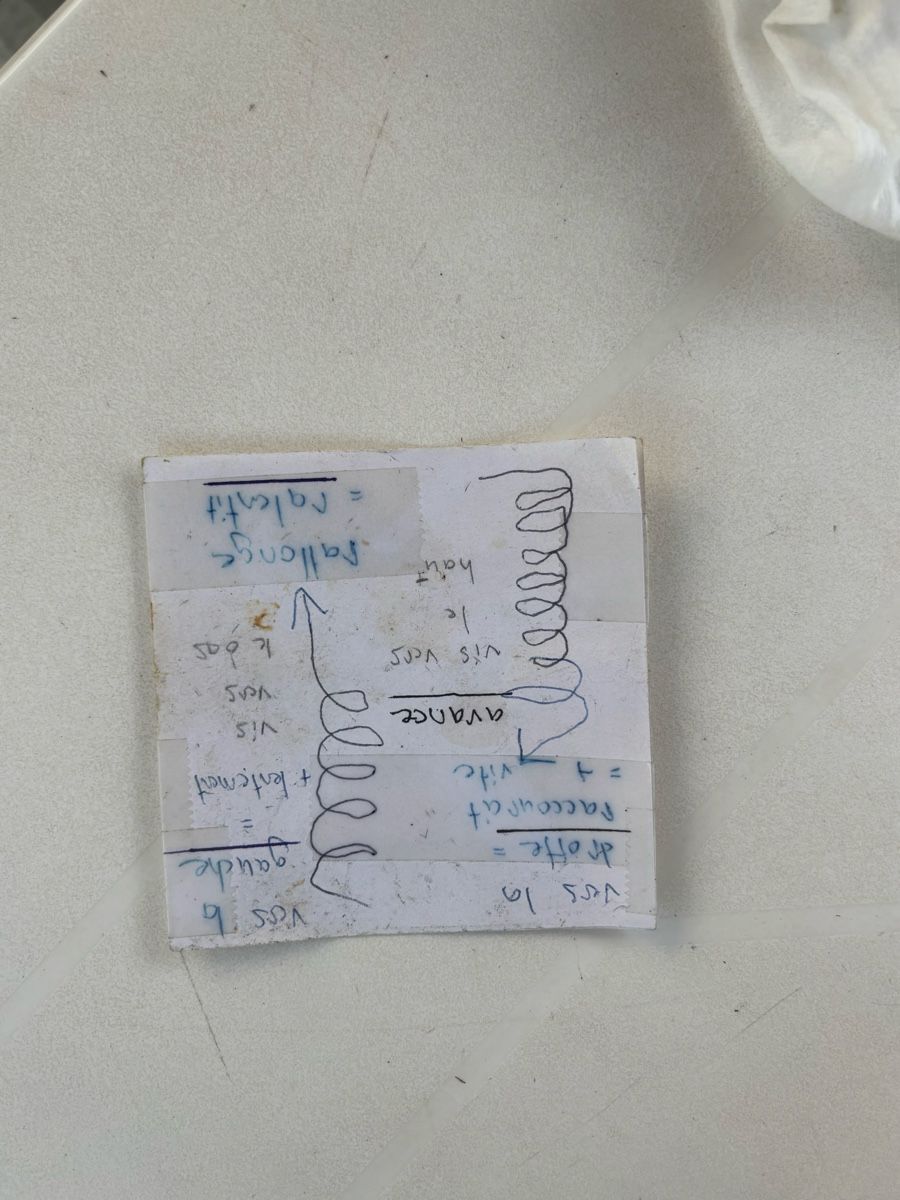 vers la
droite =
raccourcit
= + vite
avance
vis vers
le
haut
vers la
gauche
=
+ lentement
vis
vers
le bas
rallonge
= ralentit